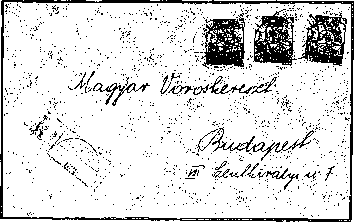 Magyar Vöröskereszt
Budapest
VIII Szentkirályi u 7